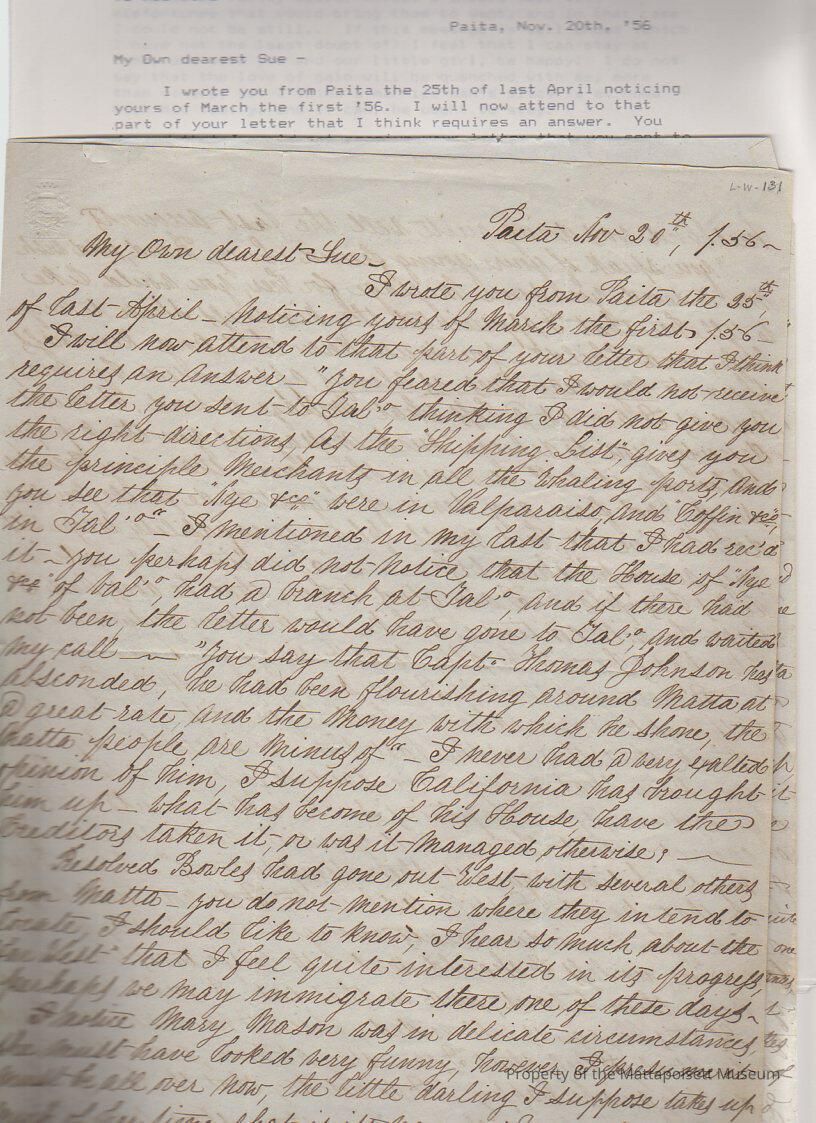 Paita, Nov. 20th, '56
My Own dearest Sue -
I wrote you from Paita the 25th of last April noticing
yours of March the first '56. I will now attend to that
part of your letter that I think requires an answer. You
L-W-131
Paita Nov 20th, /.56~
My Own dearest Sue-
I wrote you from Paita the 25th,
of last April - Noticing yours of March the first, /.56-
I will now attend to that part of your letter that I think
requires an answer - "You feared that I would not receive
the letter you sent to Tal'o thinking I did not give you
the right directions, As the "Shipping List", gives you
the principle Merchants in all the Whaling ports, and
you see that "Nye &co" were in Valparaiso, and "Coffin &co"
in Tal'o" - I mentioned in my last that I had rec'd
it - You perhaps did not notice that the House of "Nye
&co" of Val'o, had a branch at Tal'o, and if there had
not been, the letter would have gone to Tal'o, and waited
my call — "You say that Capt. Thomas Johnson has
absconded, he had been flourishing around Matta at
a great rate, and the Money with which he shone, the
Matta people are minus of" - I never had a very exalted
opinion of him, I suppose California has brought
him up - what has become of his House, have the
Creditors taken it, or was it managed otherwise; —
Resolved Bowles had gone out West, with several others
from Matta - you do not mention where they intend to
locate, I should like to know, I hear so much about the
that I feel quite interested in its progress,
perhaps we may immigrate there one of these days -
I notice Mary Mason was in delicate circumstances,
she must have looked very funny, however I presume it is
all over now, the little darling I suppose takes up
Property of the Mattapoisett Museum